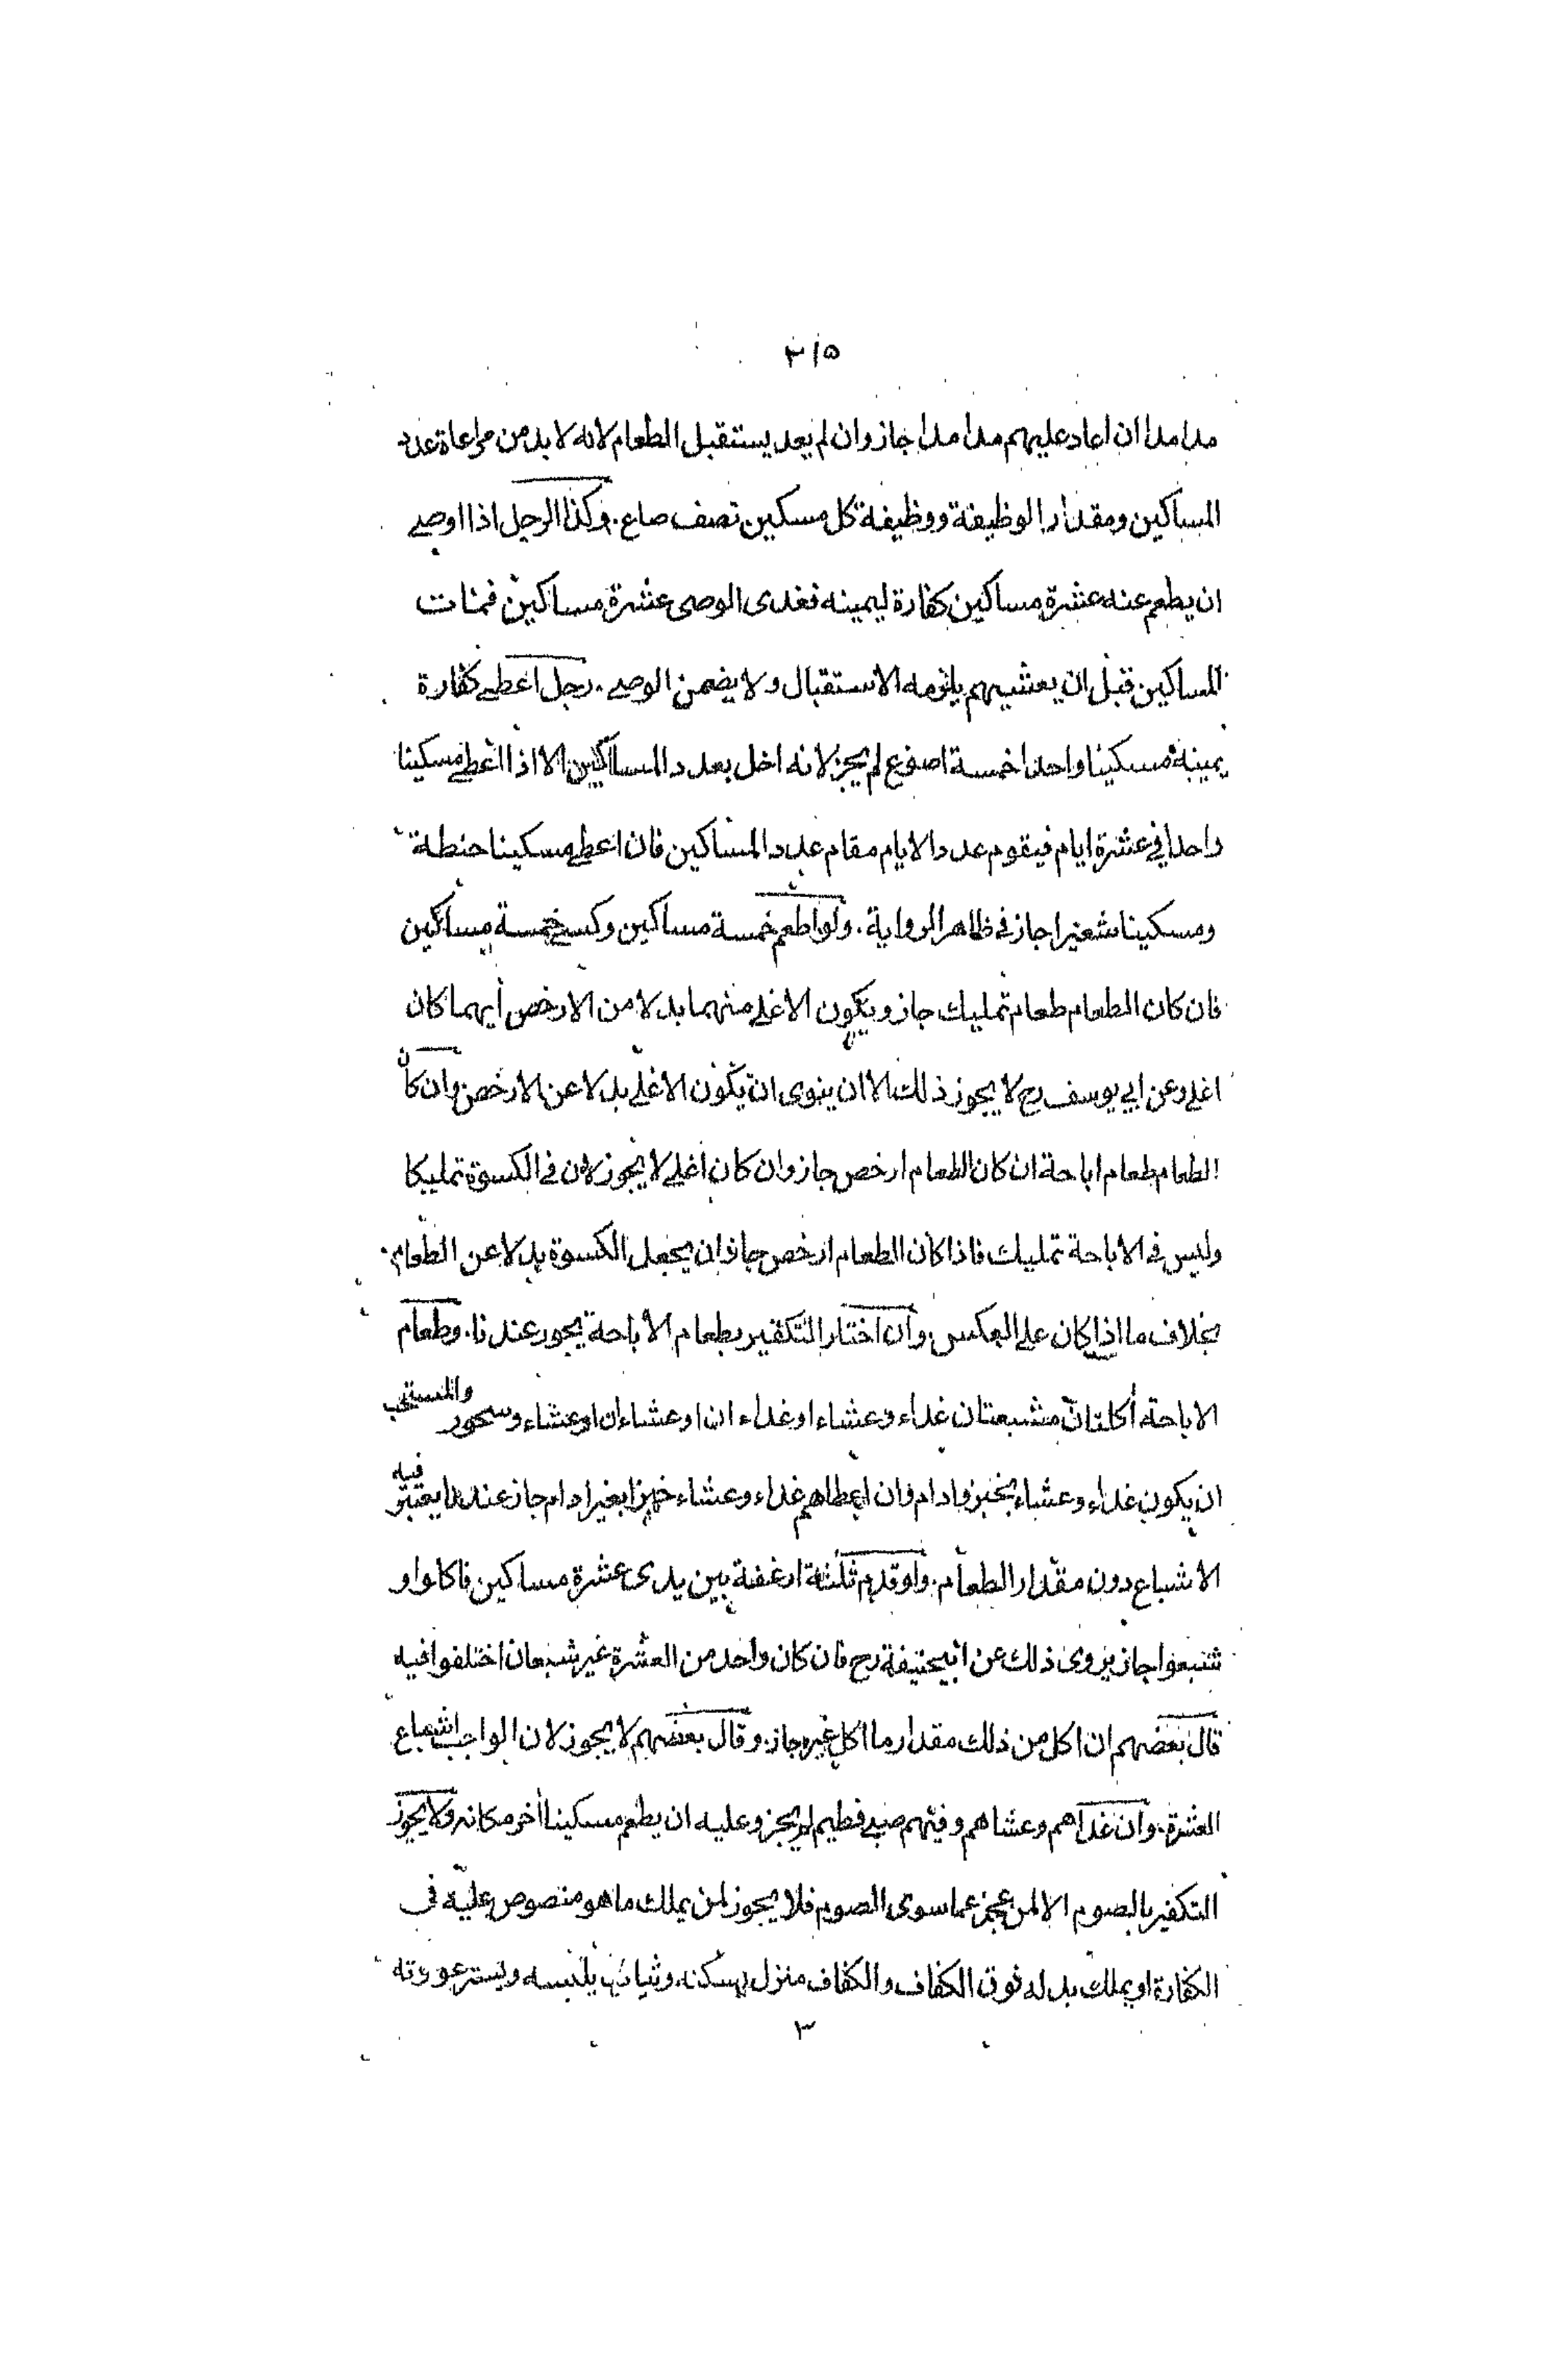 ٣١٥
مدا مدا ان اعاد عليهم مدا مدا جاز وان لم يعد يستقبل الطعام لانه لا بد من مراعاة عدد
المساكين ومقدار الوظيفة ووظيفة كل مسكين نصف صاع. وكذا الرجل اذا اوصى
ان يطعم عنه عشرة مساكين كفارة ليمينه فغدى الوصى عشرة مساكين فمات
المساكين قبل ان يعشيهم يلزمه الاستقبال ولا يضمن الوصے. رجل اعطى كفارة
يمينه مسكينا واحدا خمسة اصوع لم يجز لانه اخل بعدد المساكين الا اذا اعطى مسكينا
واحدا في عشرة ايام فيقوم عدد الايام مقام عدد المساكين فان اعطى مسكينا حنطة
ومسكينا شعيرا جاز في ظاهر الرواية. ولو اطعم خمسة مساكين وكسى خمسة مساكين
فان كان الطعام طعام تمليك جاز ويكون الاغلى منهما بدلا من الارخص أيهما كان
اغلى وعن ابي يوسف رح لا يجوز ذلك الا ان ينوى ان يكون الاغلى بدلا عن الارخص وان كان
الطعام طعام اباحة ان كان الطعام ارخص جاز وان كان اغلى لا يجوز لان في الكسوة تمليكا
وليس في الاباحة تمليك فاذا كان الطعام ارخص جاز ان يجعل الكسوة بدلا عن الطعام.
بخلاف ما اذا كان على العكس. وان اختار التكفير بطعام الاباحة يجوز عندنا. وطعام
الاباحة أكلتان مشبعتان غداء وعشاء او غداءان او عشاءان او عشاء وسحور والمستحب
ان يكون غداء وعشاء بخبز وادام وان اعطاهم غداء وعشاء خبزا بغير ادام جاز عندنا يعتبر فيه
الاشباع دون مقدار الطعام. ولو قدم ثلثة ارغفة بين يدى عشرة مساكين فاكلوا و
شبعوا جاز يروى ذلك عن ابيحنيفة رح فان كان واحد من العشرة غير شبعان اختلفوا فيه
قال بعضهم ان اكل من ذلك مقدار ما اكل غيره جاز. وقال بعضهم لا يجوز لان الواجب اشباع
العشرة. وان غداهم وعشاهم وفيهم صبى فطيم لم يجز وعليه ان يطعم مسكينا أخر مكانه ولا يجوز
التكفير بالصوم الا لمن عجز عما سوى الصوم فلا يجوز لمن يملك ما هو منصوص عليه في
الكفارة او يملك بدله فوق الكفاف والكفاف منزل يسكنه وثياب يلبسه ويستر عورته
٣